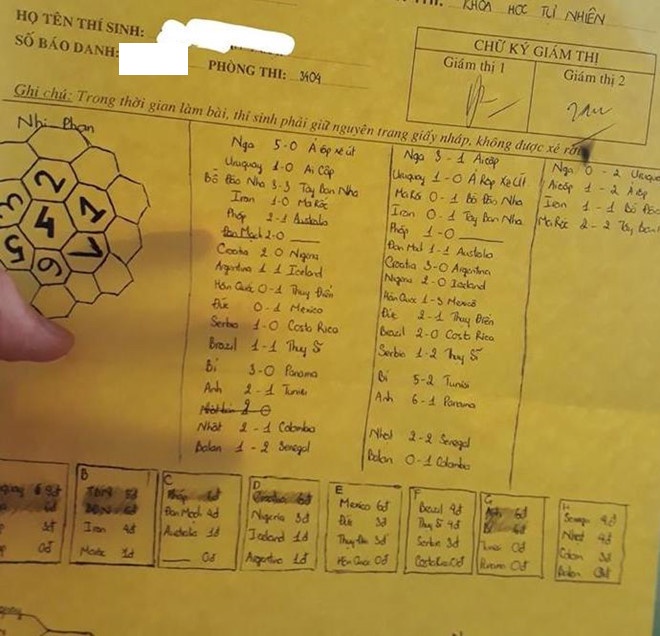 THI: KHOA HỌC TỰ NHIÊN
HỌ TÊN THÍ SINH:
SỐ BÁO DANH:
PHÒNG THI: 3404
CHỮ KÝ GIÁM THỊ
Giám thị 1
Giám thị 2
Ghi chú: Trong thời gian làm bài, thí sinh phải giữ nguyên trang giấy nháp, không được xé rời
Nhị Phan
2
3
1
4
5
1
6
Nga 5-0 Ả Rập xê út
Uruguay 1-0 Ai Cập
Bồ Đào Nha 3-3 Tây Ban Nha
Iran 1-0 Ma Rốc
Pháp 2-1 Australia
Đan Mạch 2-0
Croatia 2 0 Nigeria
Argentina 1 1 Iceland
Hàn Quốc 0-1 Thụy Điển
Đức 0-1 Mexico
Serbia 1-0 Costa Rica
Brazil 1-1 Thụy Sĩ
Bỉ 3-0 Panama
Anh 2-1 Tunisi
Nhật 2-1 Colombia
Balan 1-2 Senegal
Nga 3-1 Ai cập
Uruguay 1-0 Ả Rập Xê Út
Ma Rốc 0-1 Bồ Đào Nha
Iran 0-1 Tây Ban Nha
Pháp 1-0
Đan Mạch 1-1 Australia
Croatia 3-0 Argentina
Nigeria 2-0 Iceland
Hàn Quốc 1-3 Mexico
Đức 2-1 Thụy Điển
Brazil 2-0 Costa Rica
Serbia 1-2 Thụy Sĩ
Bỉ 5-2 Tunisi
Anh 6-1 Panama
Nhật 2-2 Senegal
Balan 0-1 Colombia
Nga 0-2
Ai cập 1-2 Ả Rập
Iran 1-1 Bồ Đào
Ma Rốc 2-2 Tây Ban
6đ
3đ
0đ
B
TBN 5đ
BĐN 5đ
Iran 4đ
Maroc 1đ
C
Pháp 6đ
Đan Mạch 4đ
Australia 1đ
0đ
D
Croatia 6đ
Nigeria 3đ
Iceland 1đ
Argentina 1đ
E
Mexico 6đ
Đức 3đ
Thụy Điển 3đ
Hàn Quốc 0đ
F
Brazil 4đ
Thụy Sĩ 4đ
Serbia 3đ
Costa Rica 0đ
G
Anh 6đ
Bỉ 6đ
Tunisi 0đ
Panama 0đ
H
Senegal 4đ
Nhật 4đ
Colom 3đ
Balan 0đ